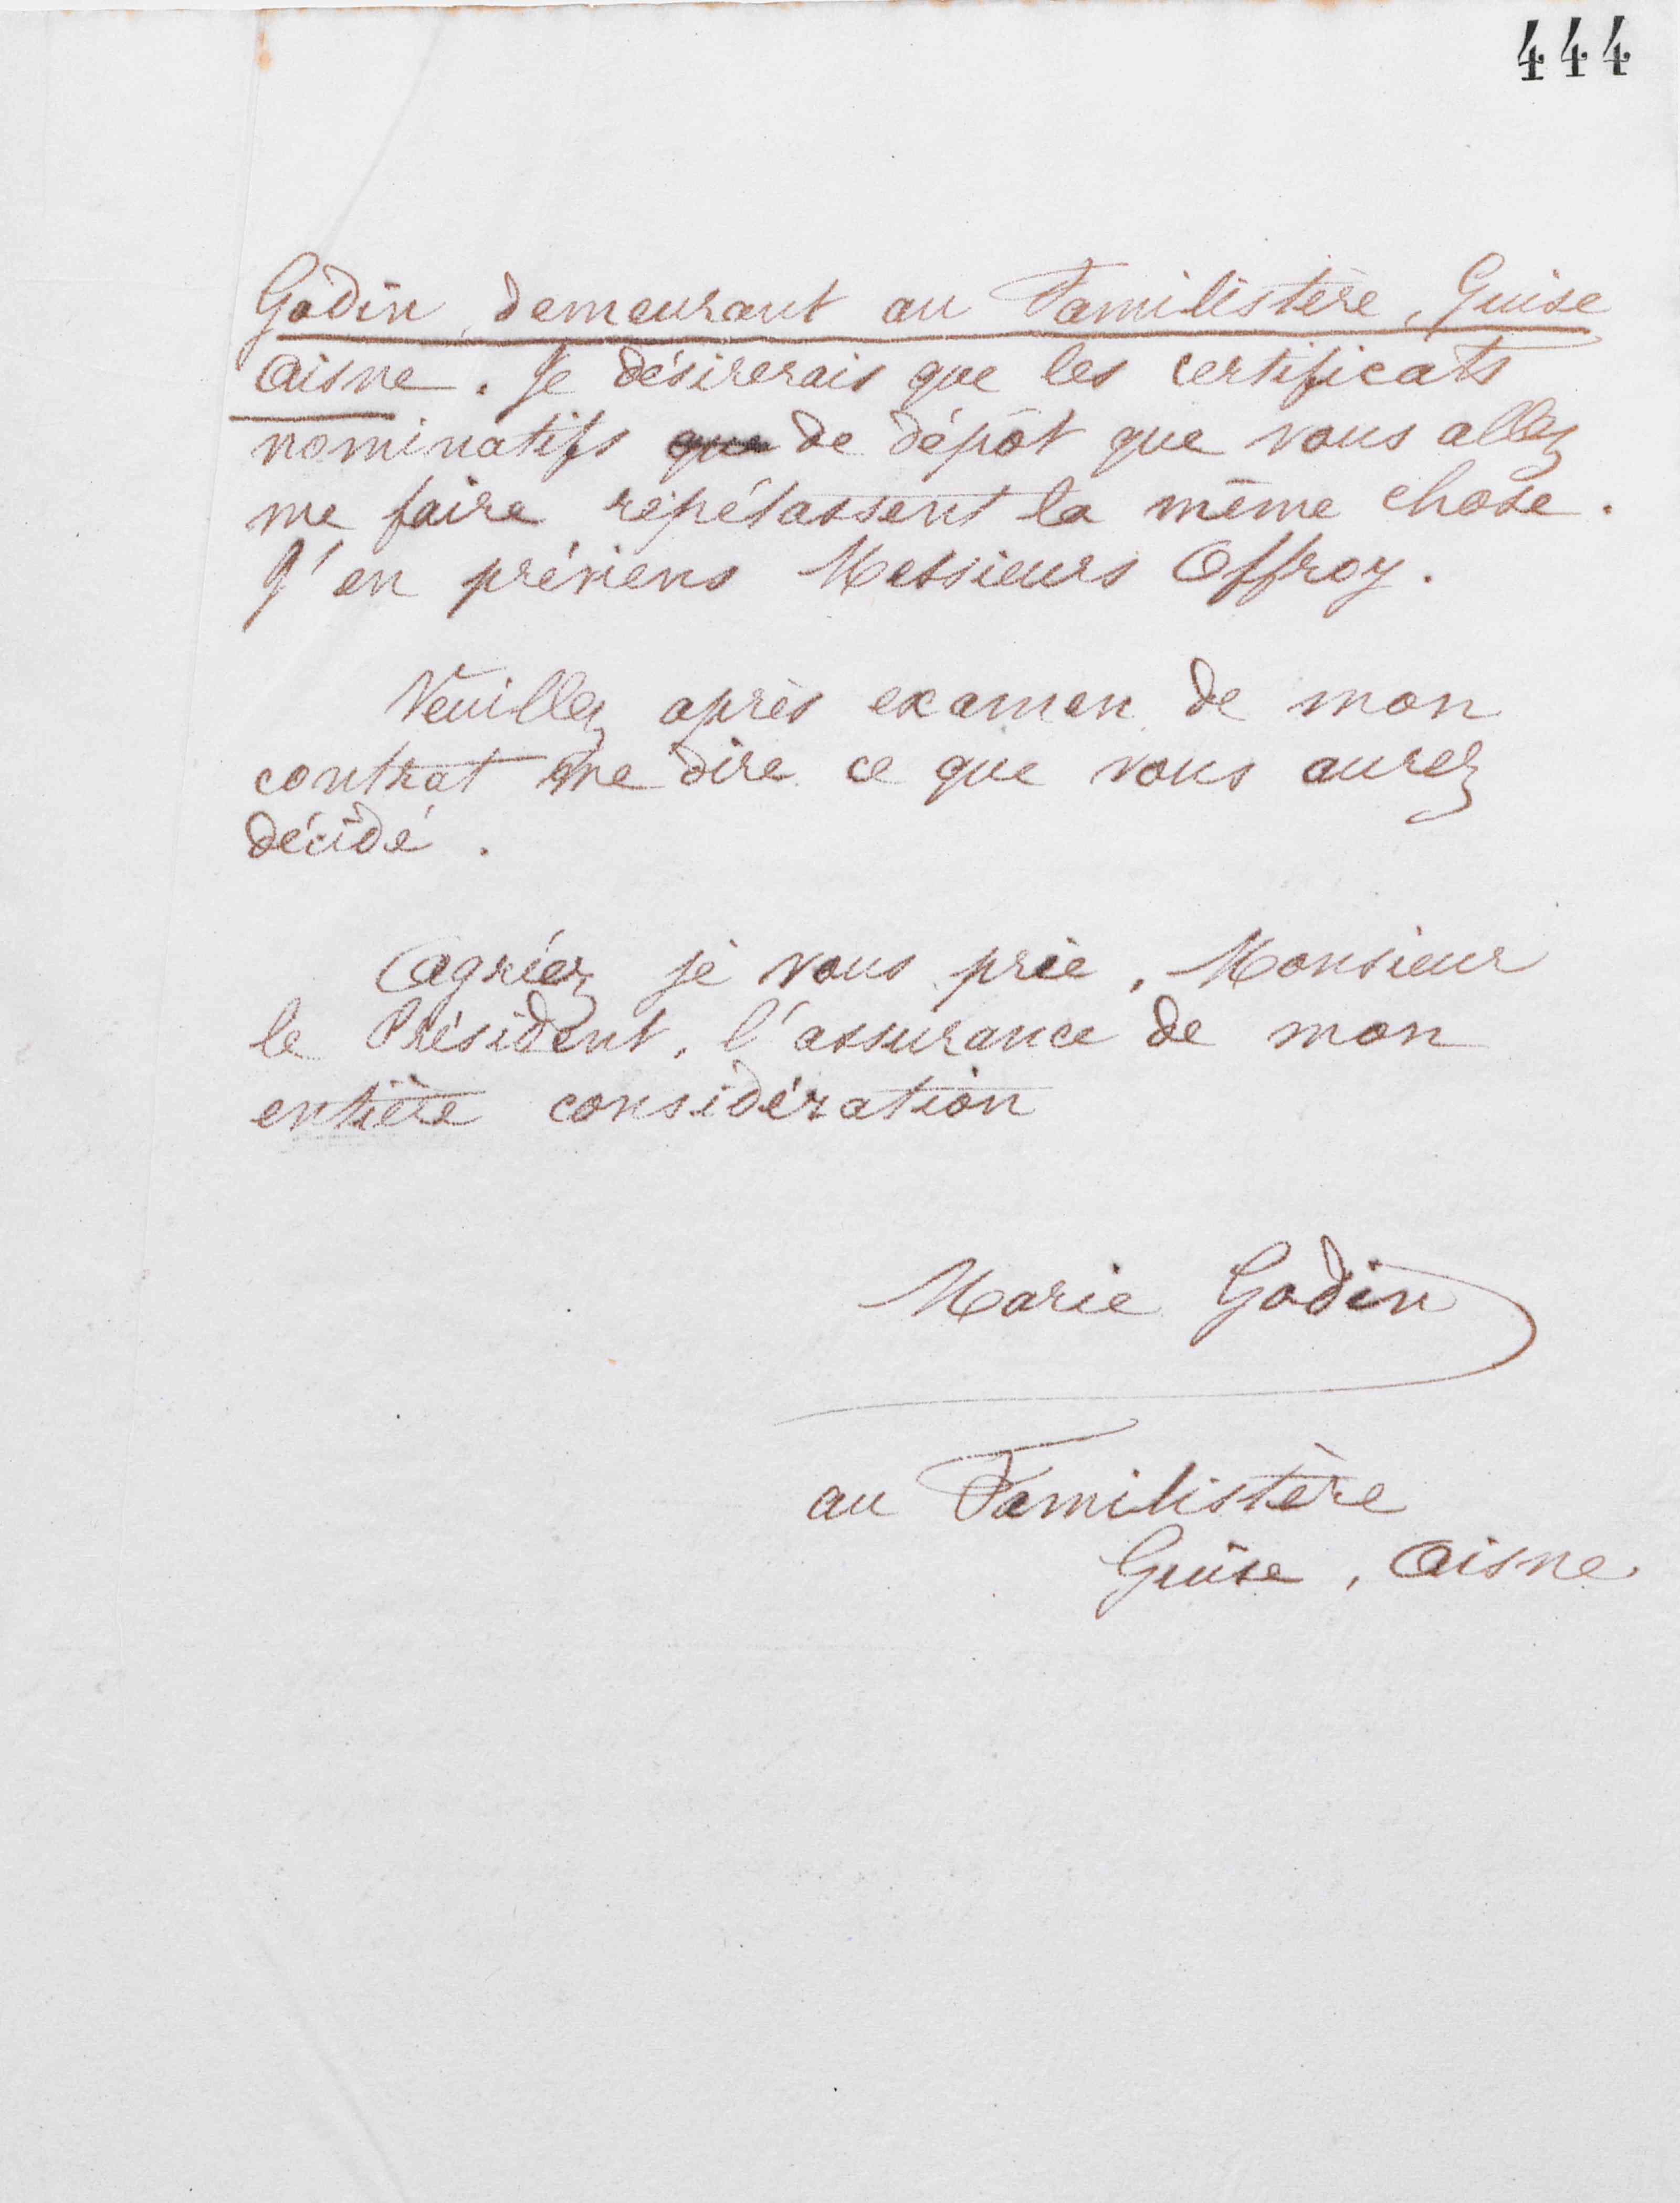 444
Godin, demeurant au Familistère, Guise
Aisne. Je désirerais que les certificats
nominatifs que de dépôt que vous allez
me faire répétassent la même chose.
J'en préviens Messieurs Offroy.
Veuillez après examen de mon
contrat me dire ce que vous aurez
décidé.
Agréez, je vous prie, Monsieur
le Président, l'assurance de mon
entière considération
Marie Godin
au Familistère
Guise, Aisne